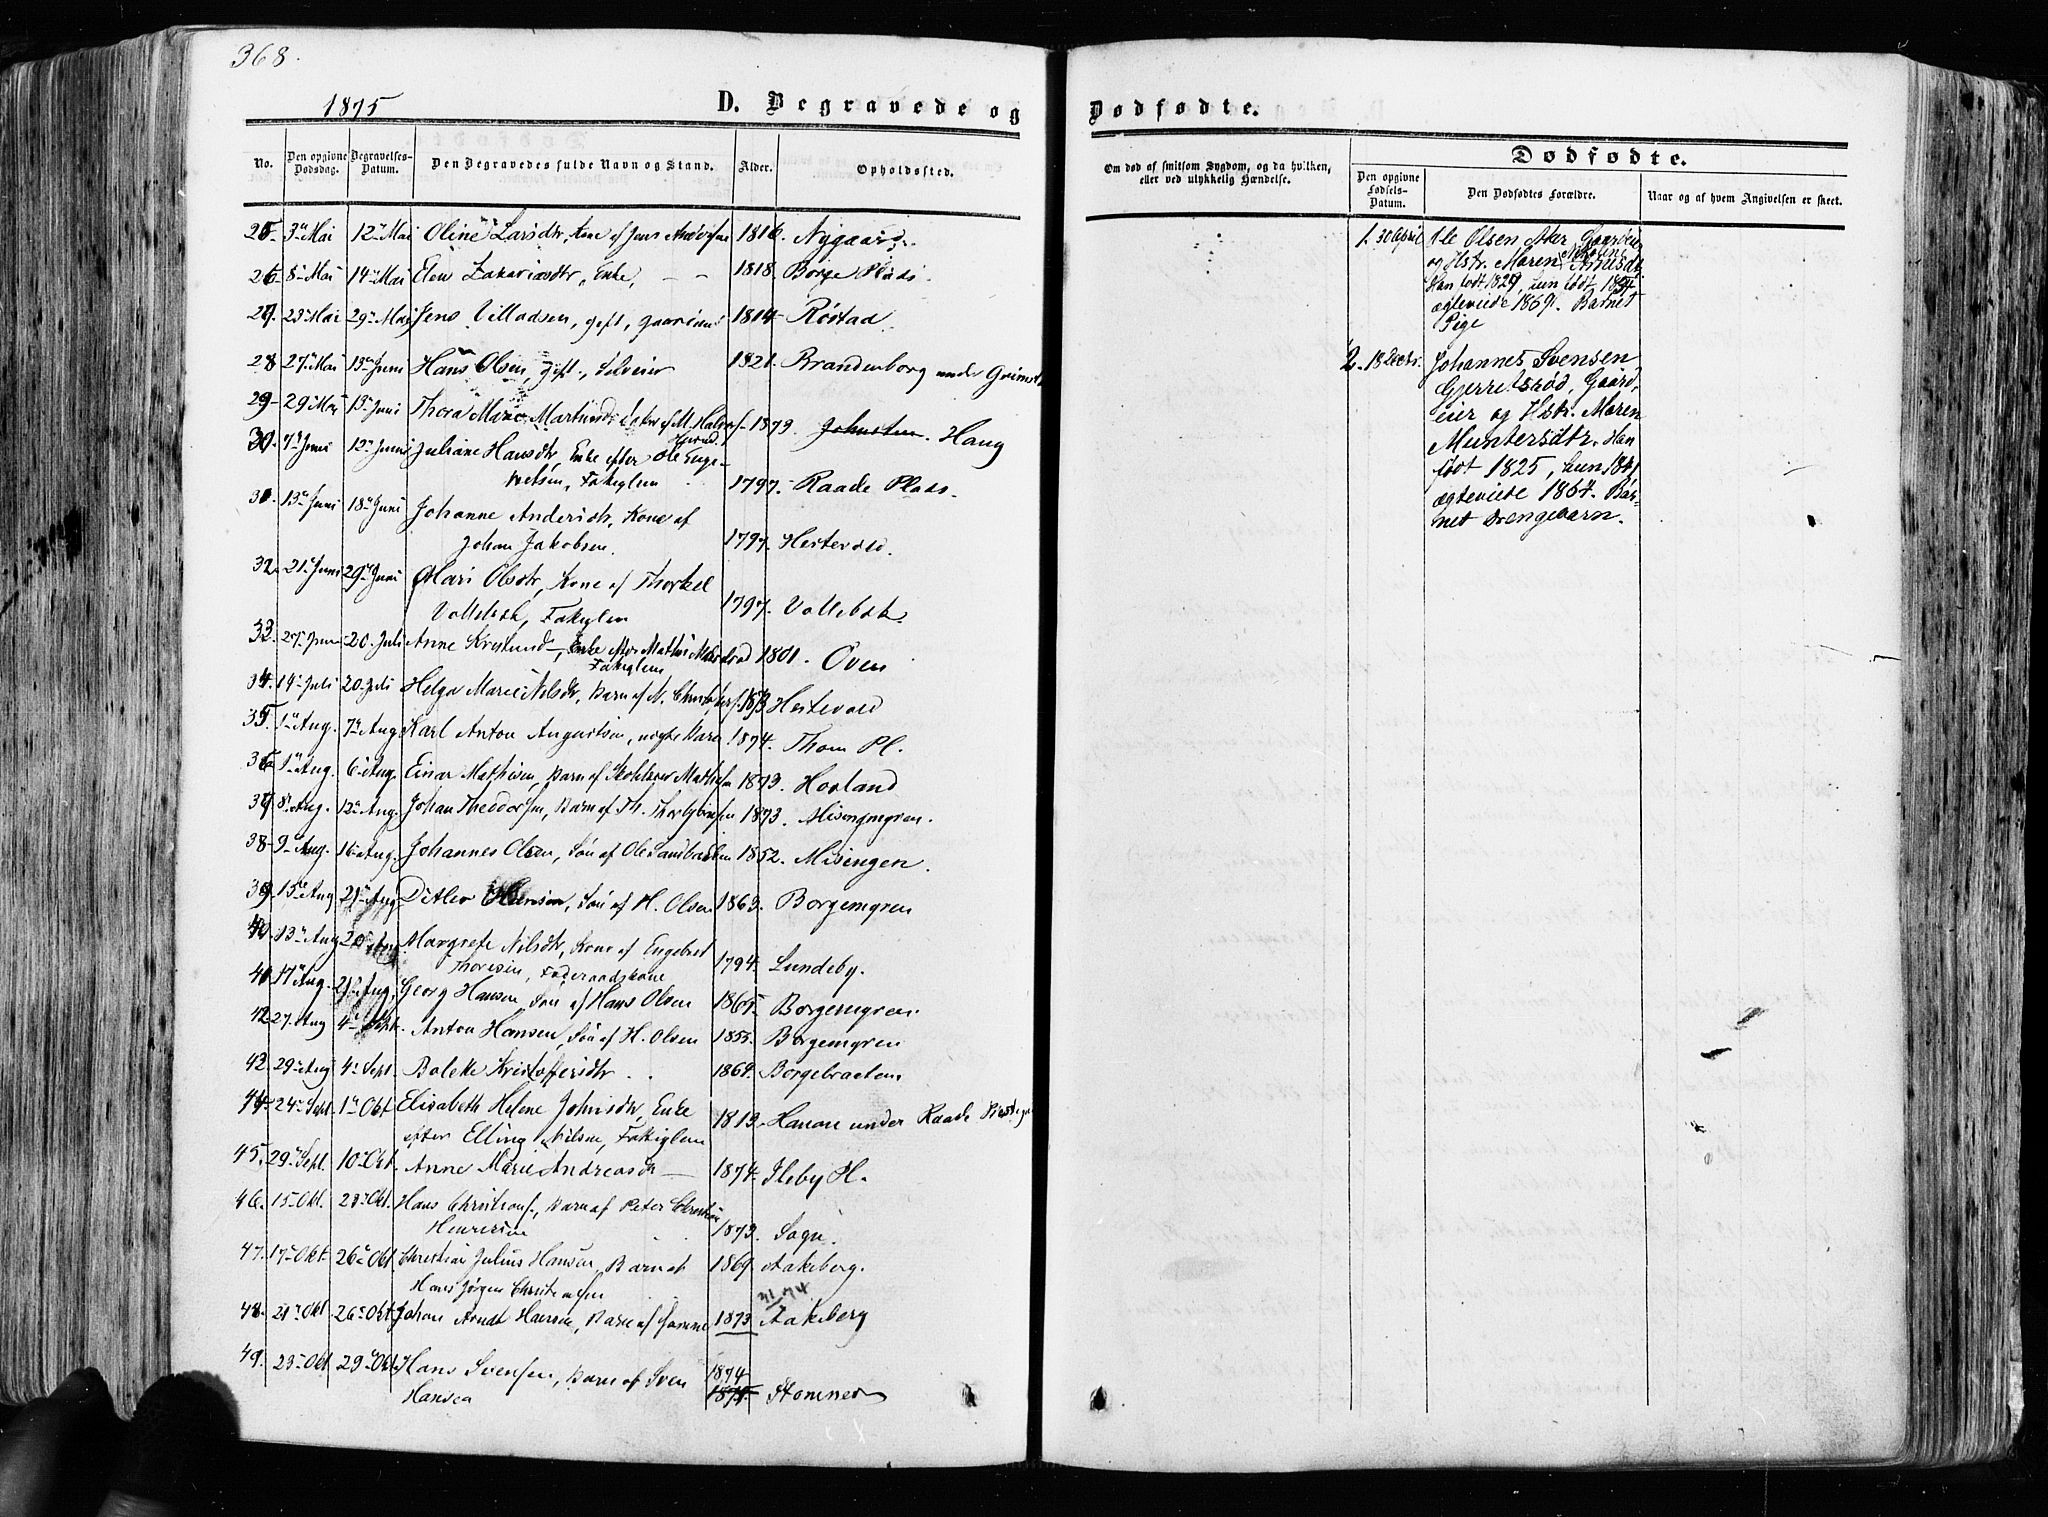 368.
1875
D. Begravede og
No. Den opgivne Dødsdag. Begravelses-Datum. Den Begravedes fulde Navn og Stand. Alder. Opholdssted.
25. 3die Mai 12te Mai Oline Larsdtr, Kone af Jens 1816. Nygaard.
26. 8de Mai 14de Mai Elen Zakariasdtr, Enke, — — 1818. Borge Plads.
27. 23 Mai 29de Mai Jens Villadsen, gift, 1814 Røstad
28 27de Mai 13de Juni Hans Olsen, gift, Selveier 1821. Brandenborg under Grimstad
29 29 Mai 13de Juni Thora Marie af M. Halvorsf 1873. Haug
30. 7de Juni 12te Juni Juliane Hansdtr, Enke efter Ole Enge-
Fattiglem 1797. Raade Plads.
31. 13de Juni 18de Juni Johanne Andersdtr, Kone af
Johan Jakobsen. 1797. Hestevold.
32. 21de Juni 29de Juni Mari Olsdtr, Kone af Thorkel
Vollebæk, Fattiglem 1797. Vollebæk.
33. 27. Juni 20. Juli Anne Enke efter Mathis
Fattiglem 1801. Oven
34. 14de Juli 20. Juli Helga Marie Nilsdtr, Barn af N. 1873 Hestevold
35. 1ste Aug. 7de Aug. Karl Anton Augustsen, uægte Barn 1874. Thom Pl.
36. 1ste Aug. 6te Aug. Einar Mathisen, Barn af 1873. Hovland
37 8de Aug. 12te Aug. Johan Theodorsen, Barn af Th. Thorbjørnsen 1873. Misingmyren.
38. 9de Aug. 16de Aug. Johannes Olsen, Søn af Ole 1852. Misingen.
39. 15de Aug 21de Aug. Ditlev Hansen, Søn af H. Olsen 1863. Borgemyren
40. 13de Aug 20de Aug. Margrete Nilsdtr, Kone af Engebret
Thoresen, Føderaadskone 1794. Lundeby.
41. 17de Aug. 21de Aug. Georg Hansen, Søn af Hans Olsen 1865. Borgemyren
42. 27. Aug 4de Sept. Anton Hansen, Søn af H. Olsen 1855. Borgemyren
43. 29de Aug 4de Sept. Bolette Kristoffersdtr 1864. Borgebraaten
44. 24de Sept. 1ste Okt Elisabeth Helene Johnsdtr, Enke
efter Elling Nilsen, Fattiglem 1813. Hanove under Raade
45. 29de Sept. 10de Okt. Anne Marie Andreasdtr 1874. Ileby H.
46. 15 Okt. 23de Okt. Hans Christiansf., Barn af Peter Christian
1873. Sogn.
47. 17de Okt. 26de Okt. Christian Julius Hansen, Barn af 1869. Aakeberg.
Hans Jørgen Christensen
74
48. 21de Okt 26de Okt. Johan Arndt Hansen, Barn af Samme 1873 Aakeberg
49. 23de Okt 29de Okt. Hans Svensen, Barn af Sven 1874
Hansen Stommer
Dødfødte.
Om død af smitsom Sygdom, og da hvilken, eller ved ulykkelig Hændelse.
Dødfødte.
Den opgivne Fødsels-Datum. Den Dødfødtes Forældre. Naar og af hvem Angivelsen er skeet.
1. 30 April Ole Olsen Aker, Gaardeier
og Hstr. Maren
Han født 1829, hun født
ægteviede 1869. Barnet
Pige
2. 18 Decbr. Johannes Svensen
Gjerretsrød, Gaard-
eier og Hstr. Maren
Muntersdtr. Han
født 1825, hun 1841
ægteviede 1867. Bar-
net Drengebarn.